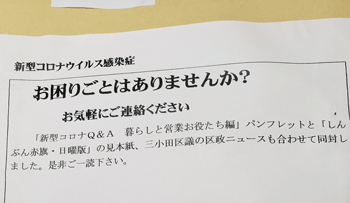 新型コロナウイルス感染症
お困りごとはありませんか?
お気軽にご連絡ください
「新型コロナQ&A 暮らしと営業お役たち編」パンフレットと「しん
ぶん赤旗・日曜版」の見本紙、三小田区議の区政ニュースも合わせて同封し
ました。是非ご一読下さい。